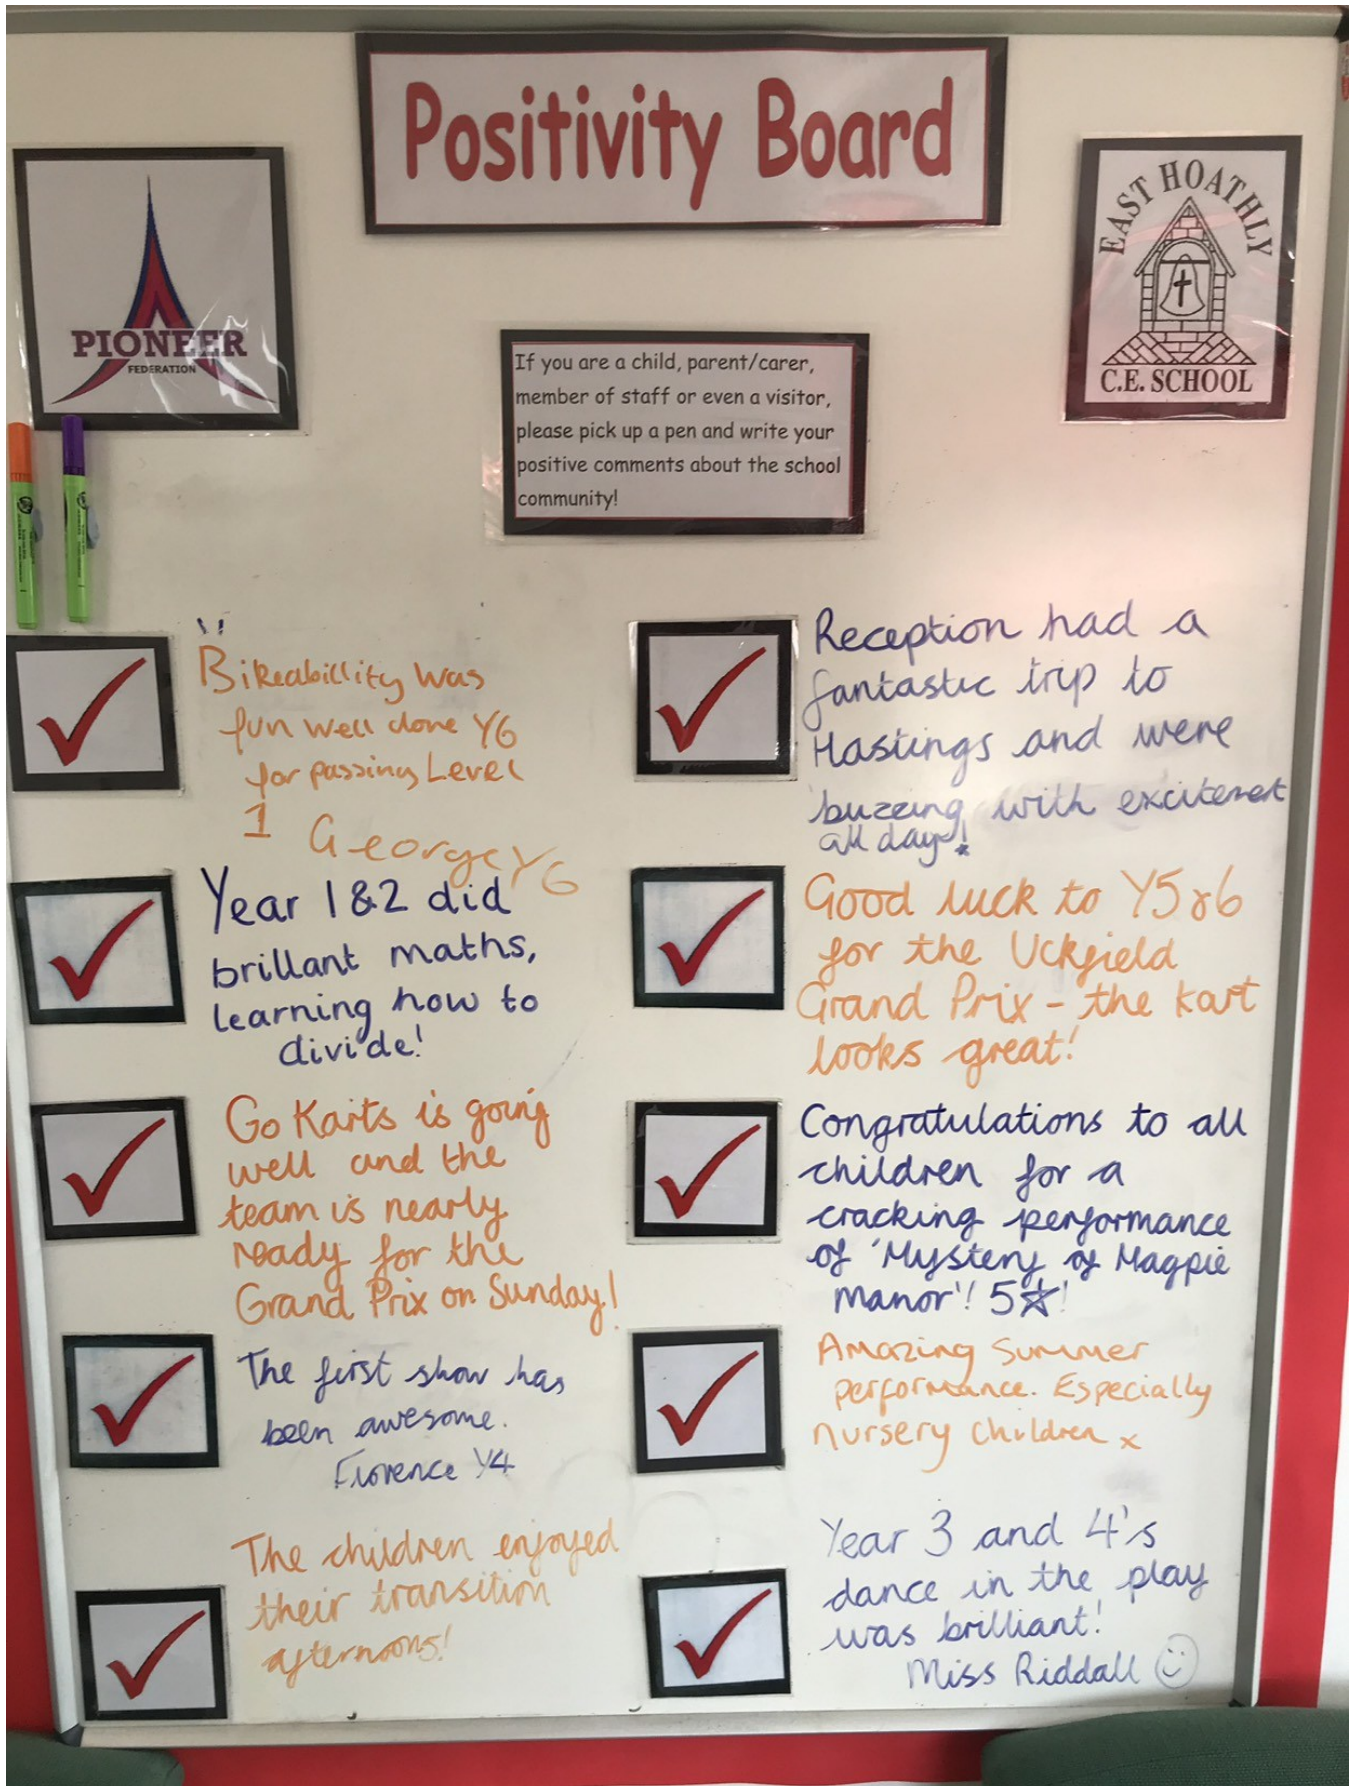 Positivity Board
PIONEER
FEDERATION
EAST HOATHLY
C.E. SCHOOL
If you are a child, parent/carer,
member of staff or even a visitor,
please pick up a pen and write your
positive comments about the school
community!
Bikeabillity was
fun well done Y6
for passing Level
1 George Y6
Year 1&2 did
brillant maths,
learning how to
divide!
Go Karts is going
well and the
team is nearly
ready for the
Grand Prix on Sunday!
The first show has
been awesome.
Florence Y4
The children enjoyed
their transition
afternoons!
Reception had a
fantastic trip to
Hastings and were
buzzing with excitement
all day!
Good luck to Y5&6
for the Uckfield
Grand Prix - the kart
looks great!
Congratulations to all
children for a
cracking performance
of 'Mystery of Magpie
Manor'! 5☆!
Amazing Summer
performance. Especially
nursery children x
Year 3 and 4's
dance in the play
was brilliant!
Miss Riddall ☺